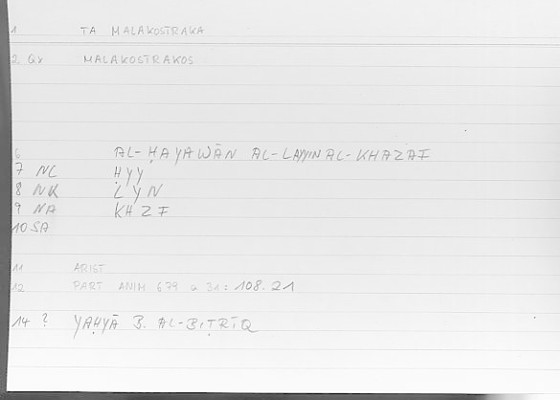 1 TA MALAKOSTRAKA
2 QX MALAKOSTRAKOS
6 AL-ḤAYAWĀN AL-LAYYIN AL-KHAZAF
7 NL ḤYY
8 NK LYN
9 NA KHZF
10 SA
11 ARIST
12 PART ANIM 679 a 31: 108.21
14 ? YAḤYĀ B. AL-BIṬRĪQ